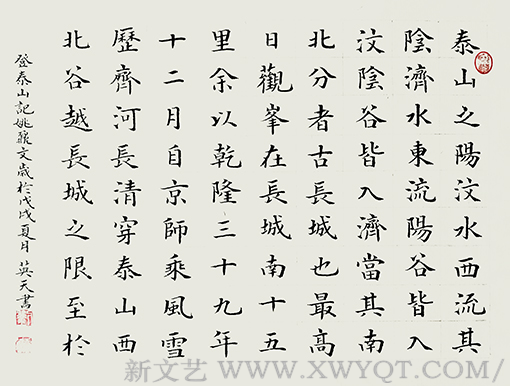 泰山之陽汶水西流其
陰濟水東流陽谷皆入
汶陰谷皆入濟當其南
北分者古長城也最高
日觀峯在長城南十五
里余以乾隆三十九年
十二月自京師乘風雪
歷齊河長清穿泰山西
北谷越長城之限至於
登泰山記姚鼐文歲於戊戌夏月英天書
新文艺 www.XWYQT.COM/